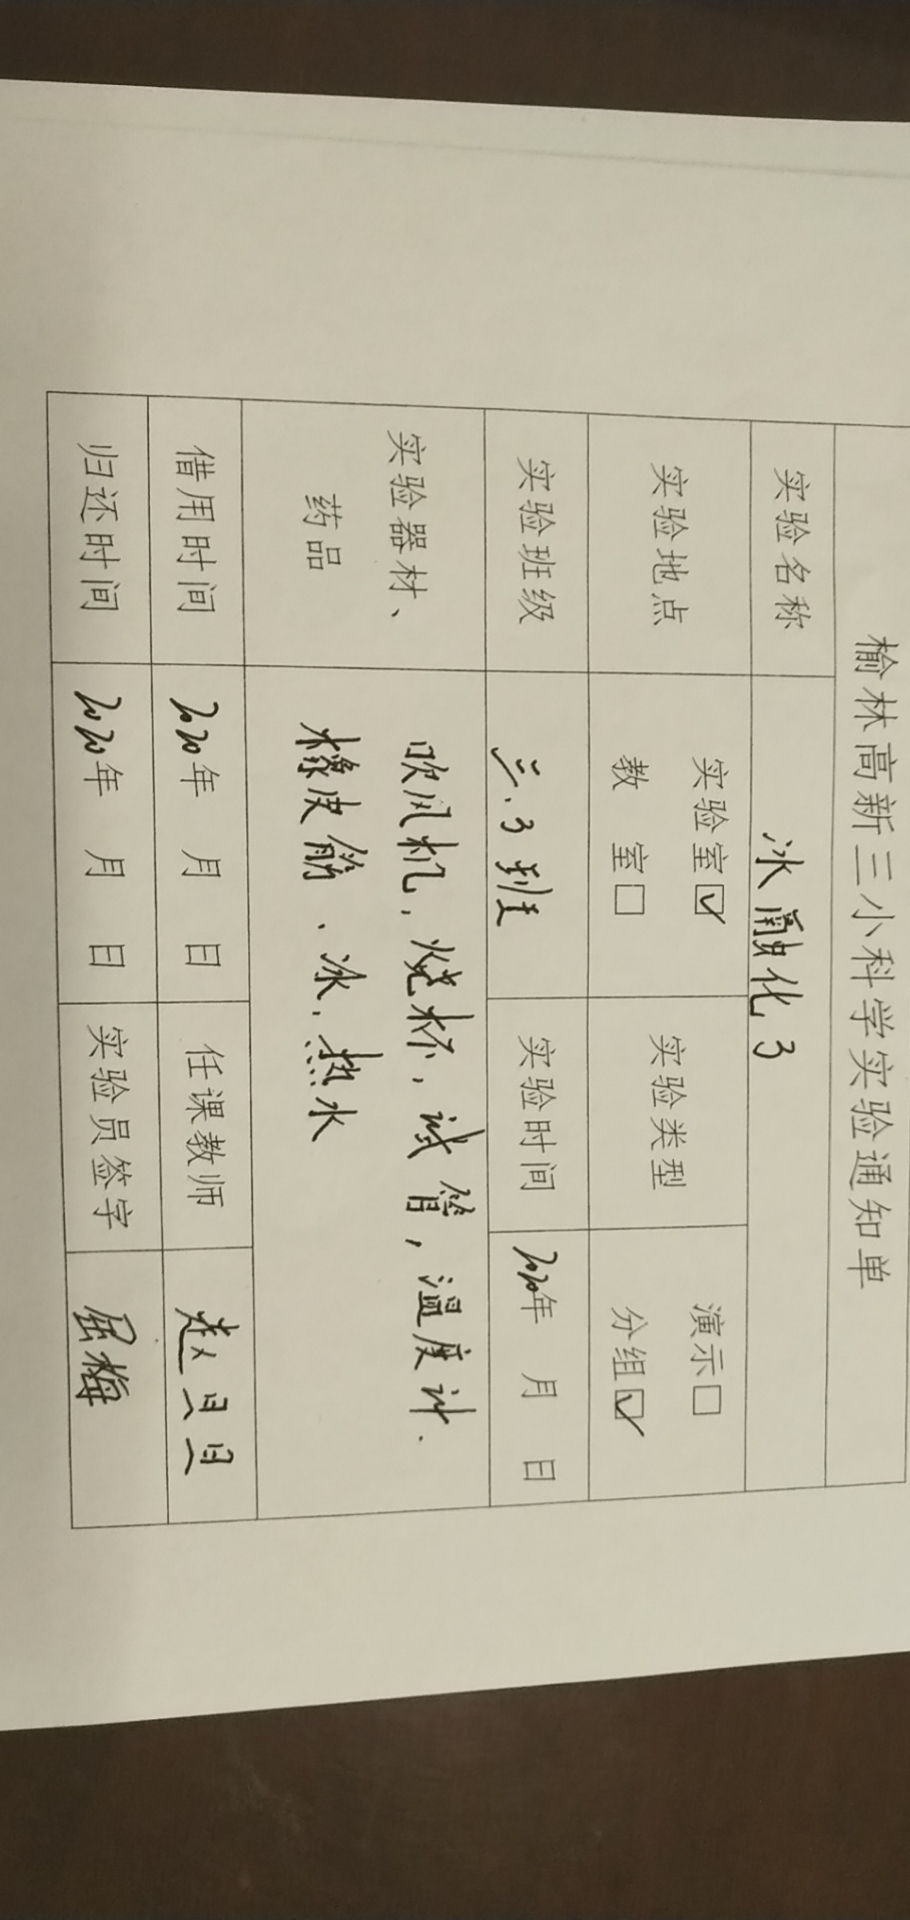 榆林高新三小科学实验通知单
实验名称 冰融化3
实验地点 实验室☑ 实验类型 演示□
教 室□ 分组☑
实验班级 三.3班 实验时间 2020年 月 日
实验器材、 吹风机,烧杯,试管,温度计.
药品 橡皮筋、冰、热水
借用时间 2020年 月 日 任课教师 赵旦旦
归还时间 2020年 月 日 实验员签字 屈梅